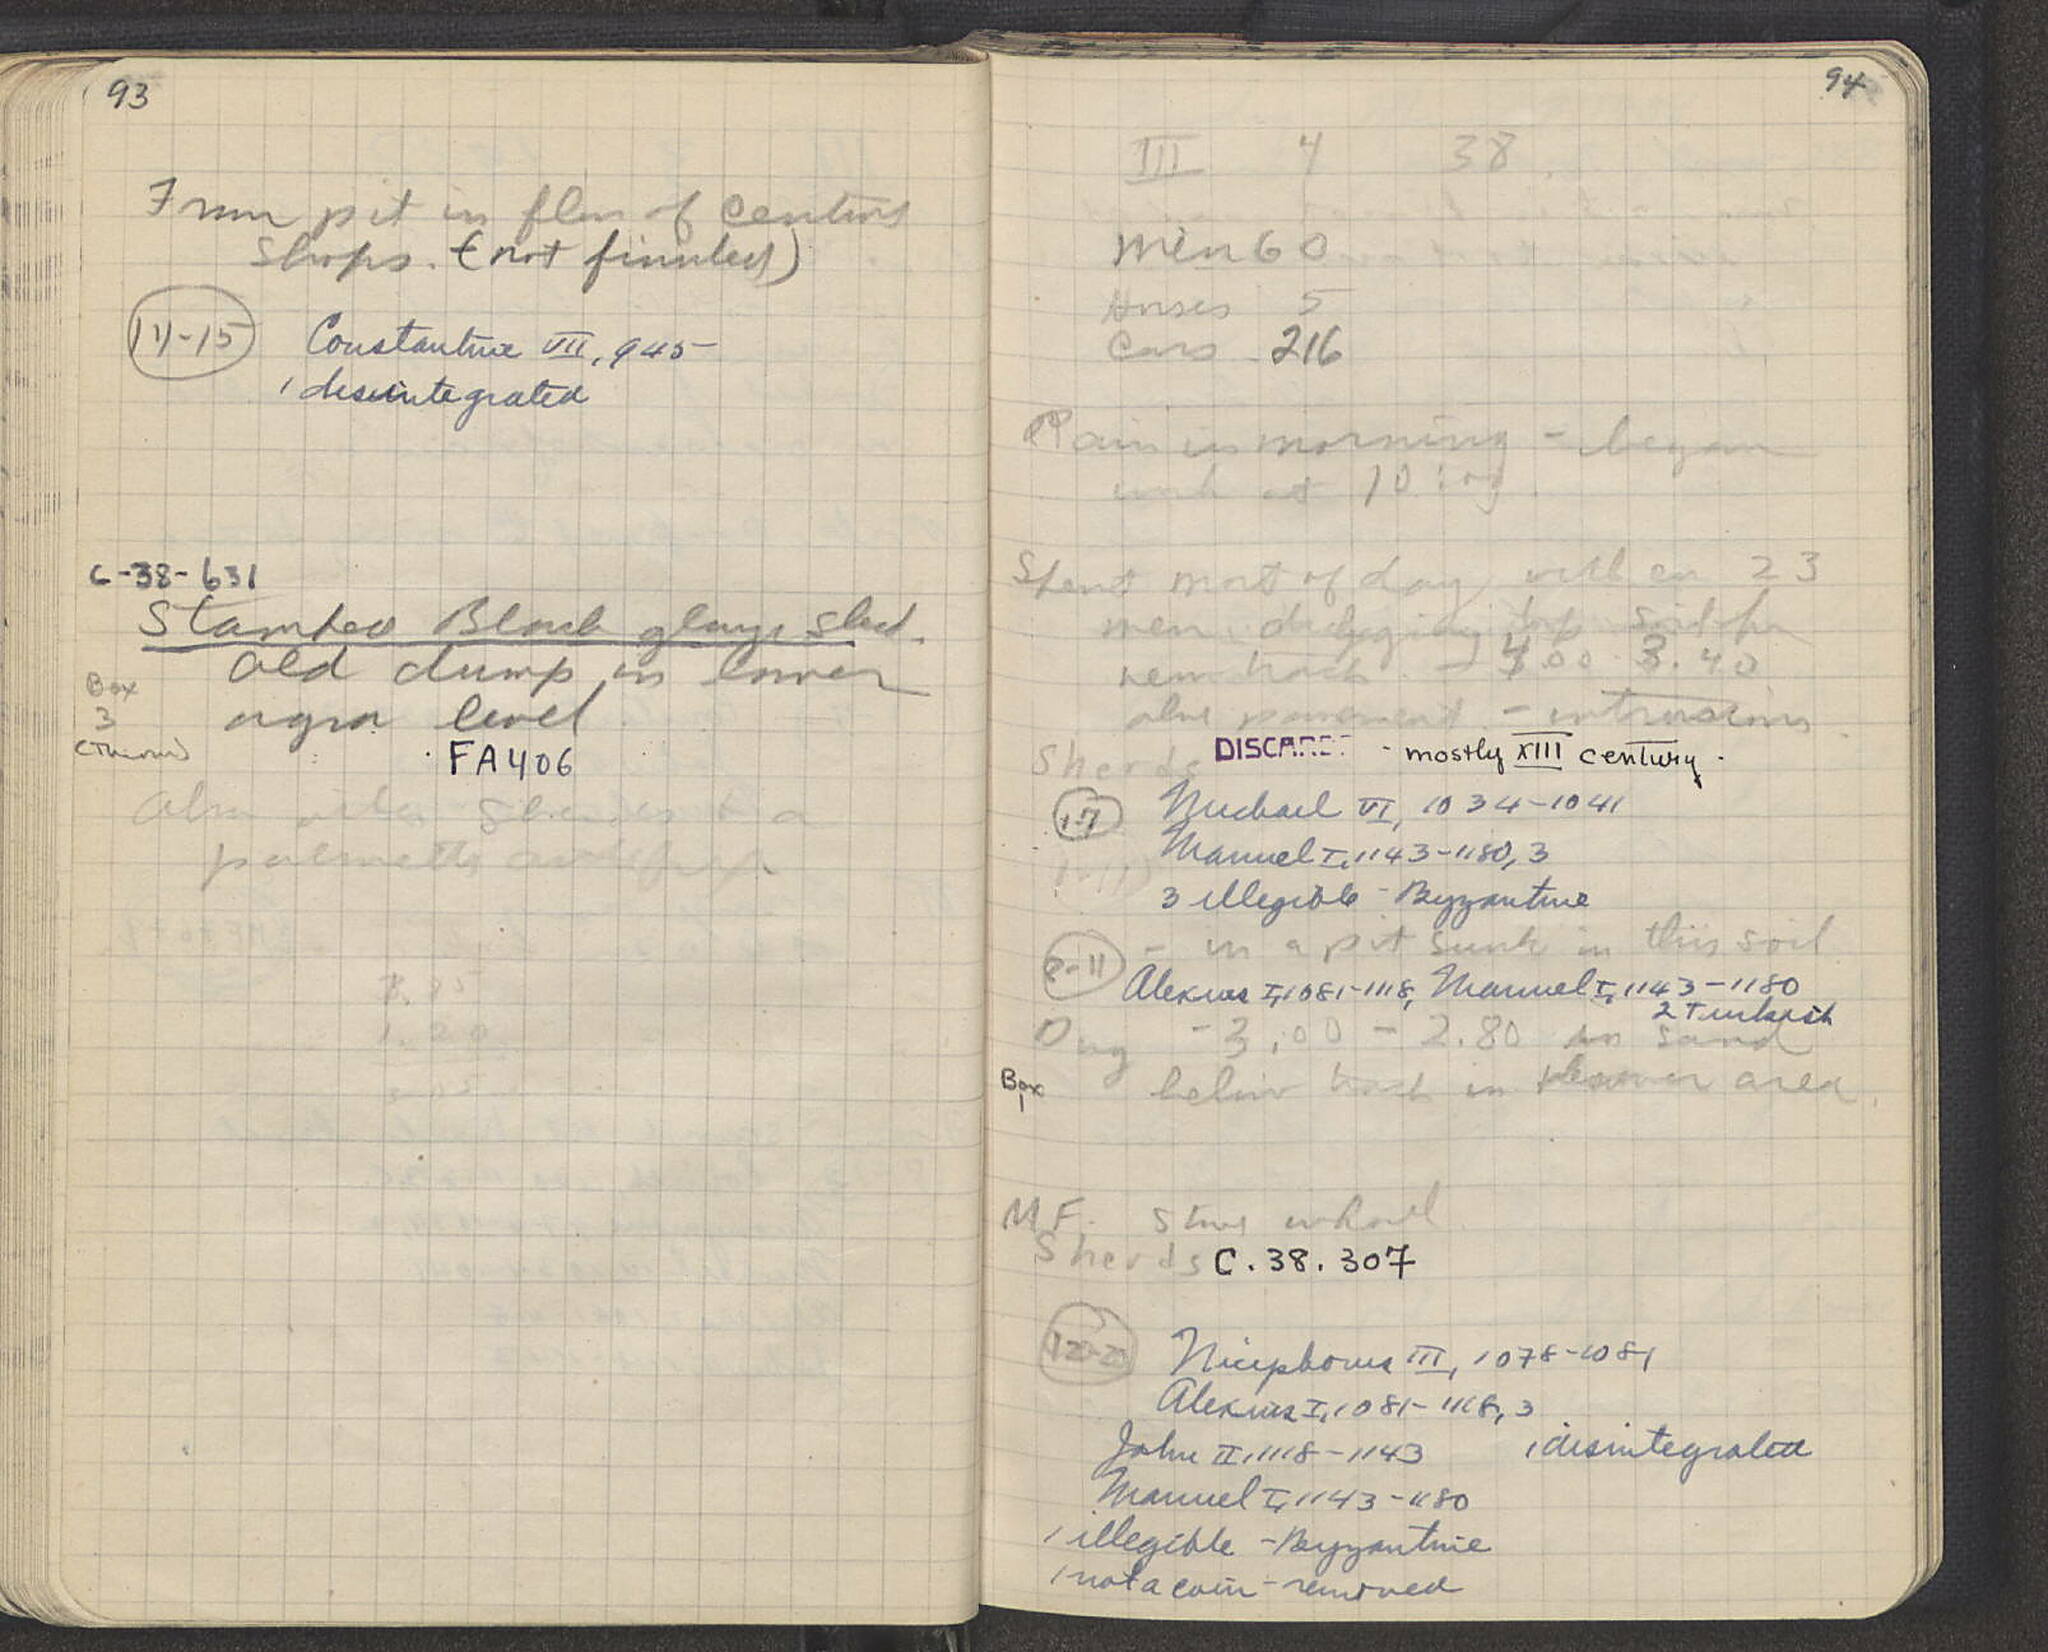 93
From pit in floor of central
shops. (not finished)
14-15 Constantine VII, 945-
1 disintegrated
C-38-631
Stamped Black glaze sherd.
old dump in lower
Box agora level
3
FA406
Also other sherds & a
palmette
94
III 4 38
Men 60
Horses 5
Cars 216
Rain in morning - began
work at 10:
Spent most of day with 23
men digging top soil for
new track - 4.00 3.40
above pavement -
Sherds DISCARD - mostly XIII century.
1-7 Michael VI, 1034-1041
Manuel I, 1143-1180, 3
3 illegible - Byzantine
8-11 - in a pit sunk in this soil
Alexius I, 1081-1118, Manuel I, 1143-1180
2 Turkish
Dug - 3.00 - 2.80 in sand
Box below track in area.
1
M F. Stone whorl
Sherds C.38.307
Nicephorus III, 1078-1081
Alexius I, 1081-1118, 3
John II, 1118-1143 1 disintegrated
Manuel I, 1143-1180
1 illegible - Byzantine
1 not a coin - removed